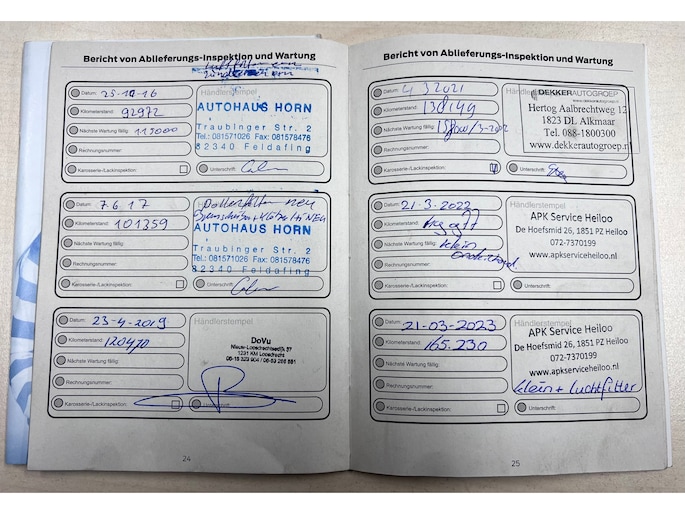 Bericht von Ablieferungs-Inspektion und Wartung
Datum: 25-10-16
Kilometerstand: 92972
Nächste Wartung fällig: 115000
Rechnungsnummer:
Karosserie-/Lackinspektion:
AUTOHAUS HORN
Traubinger Str. 2
Tel.: 081571026 Fax: 081578476
82340 Feldafing
Unterschrift:
Datum: 7.6.17
Kilometerstand: 101359
Nächste Wartung fällig:
Rechnungsnummer:
Karosserie-/Lackinspektion:
Pollenfilter neu
AUTOHAUS HORN
Traubinger Str. 2
Tel.: 081571026 Fax: 081578476
82340 Feldafing
Unterschrift:
Datum: 23-4-2019
Kilometerstand: 120470
Nächste Wartung fällig:
Rechnungsnummer:
Karosserie-/Lackinspektion:
Händlerstempel
DoVu
24
Bericht von Ablieferungs-Inspektion und Wartung
Datum: 4 3 2021
Kilometerstand: 138149
Nächste Wartung fällig:
Rechnungsnummer:
Karosserie-/Lackinspektion:
DEKKERAUTOGROEP
Hertog Aalbrechtweg 12
1823 DL Alkmaar
Tel. 088-1800300
www.dekkerautogroep.nl
Unterschrift:
Datum: 21-3-2022
Kilometerstand:
Nächste Wartung fällig: klein
onderhoud
Rechnungsnummer:
Karosserie-/Lackinspektion:
Händlerstempel
APK Service Heiloo
De Hoefsmid 26, 1851 PZ Heiloo
072-7370199
www.apkserviceheiloo.nl
Unterschrift:
Datum: 21-03-2023
Kilometerstand: 165.230
Nächste Wartung fällig:
Rechnungsnummer:
Karosserie-/Lackinspektion:
Händlerstempel
APK Service Heiloo
De Hoefsmid 26, 1851 PZ Heiloo
072-7370199
www.apkserviceheiloo.nl
klein + luchtfilter
Unterschrift:
25